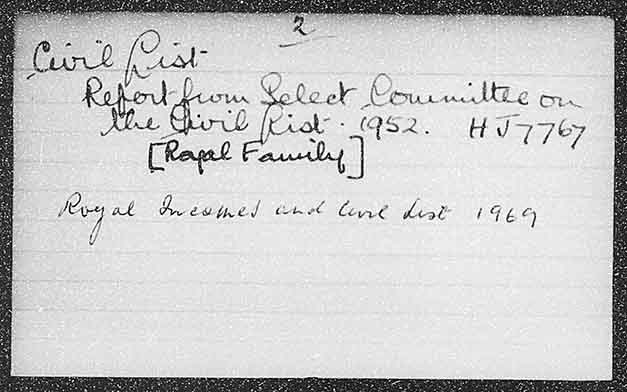 2
Civil List
Report from Select Committee on
the Civil List. 1952. HJ7767
[Royal Family]
Royal Incomes and Civil List 1969